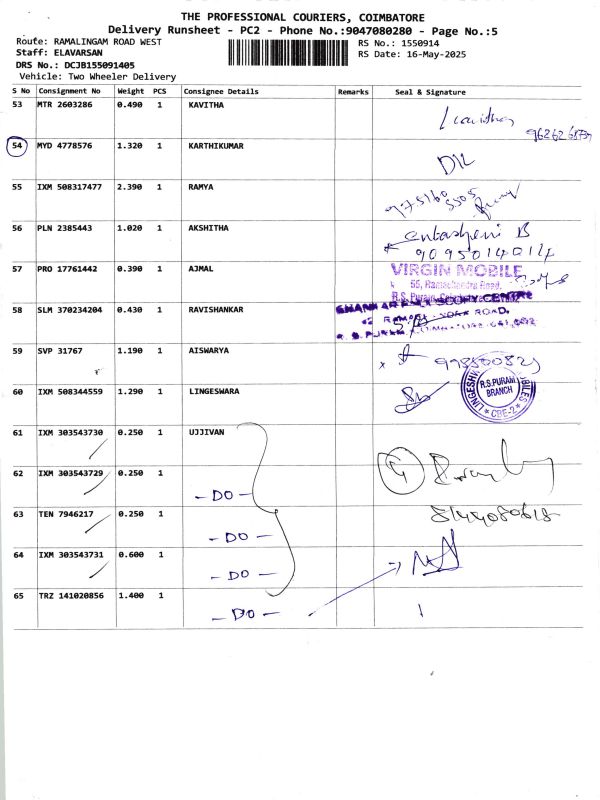 THE PROFESSIONAL COURIERS, COIMBATORE
Delivery Runsheet - PC2 - Phone No.:9047080280 - Page No.:5
Route: RAMALINGAM ROAD WEST RS No.: 1550914
Staff: ELAVARSAN RS Date: 16-May-2025
DRS No.: DCJB155091405
Vehicle: Two Wheeler Delivery
S No Consignment No Weight PCS Consignee Details Remarks Seal & Signature
53 MTR 2603286 0.490 1 KAVITHA
54 MYD 4778576 1.320 1 KARTHIKUMAR
55 IXM 508317477 2.390 1 RAMYA
56 PLN 2385443 1.020 1 AKSHITHA
9095014014
57 PRO 17761442 0.390 1 AJMAL VIRGIN MOBILE
55, Ramachandra Road,
R.S. Puram,
58 SLM 370234204 0.430 1 RAVISHANKAR
ROAD.
59 SVP 31767 1.190 1 AISWARYA
60 IXM 508344559 1.290 1 LINGESWARA
R.S.PURAM
BRANCH
CBE-2
61 IXM 303543730 0.250 1 UJJIVAN
62 IXM 303543729 0.250 1 - DO -
63 TEN 7946217 0.250 1 - DO -
64 IXM 303543731 0.600 1 - DO -
65 TRZ 141020856 1.400 1 - DO -